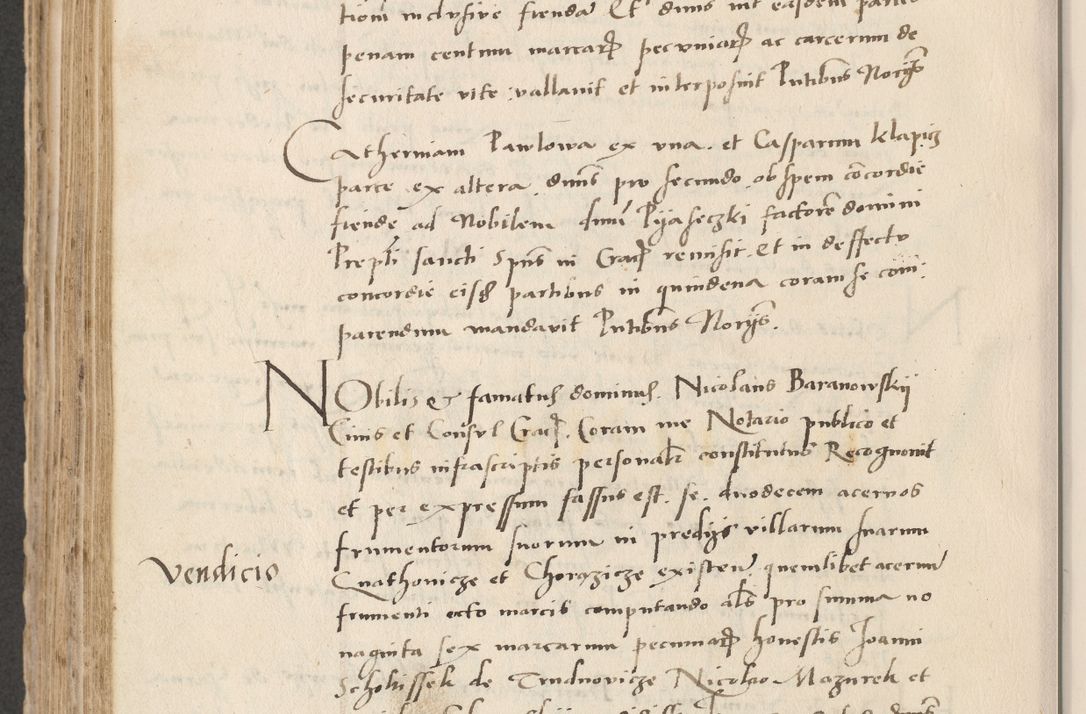 tiom inclusive fienda Et dnus int easdem partes
penam centum marcarum pecuniarum ac carcerum de
securitate vite vallavit et interposuit Pntibus Norijs
Catherinam Pawlowa ex vna et Casparum Klapicz
parte ex altera dnus pro secundo ob spem concordie
fiende ad Nobilem dnum Pijaseczki factorem domini
Prepti sancti Spns in Crac remisit Et in deffectu
concordie eisdem partibus in quindena coram se com:
parendum mandavit Pntibus Norijs.
NObilis et famatus dominus Nicolaus Baranowskij
Civis et Consul Crac. Coram me Notario publico et
testibus infrascriptis personalr constitutus Recognovit
et per expressum fassus est se duodecem acervos
frumentorum suorum in predijs villarum suarum
vendicio
Cnathovicze et Chorązicze existen quemlibet acervum
frumenti octo marcis computando als pro summa no
naginta sex marcarum pecuniarum honestis Joanni
Scholtissek de Trudnovicze Nicolao Mazurek et